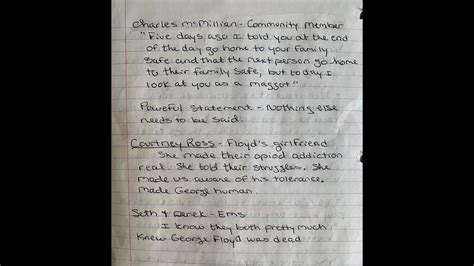 Charles McMillian - Community Member
"Five days ago I told you at the end
of the day go home to your family
safe and that the next person go home
to their family safe, but today I
look at you as a maggot"
Powerful Statement - Nothing else
needs to be said.
Courtney Ross - Floyd's girlfriend
She made their opiod addiction
real. She told their struggles. She
made us aware of his tolerance.
Made George human.
Seth & Derek - Ems
I know they both pretty much
Knew George Floyd was dead